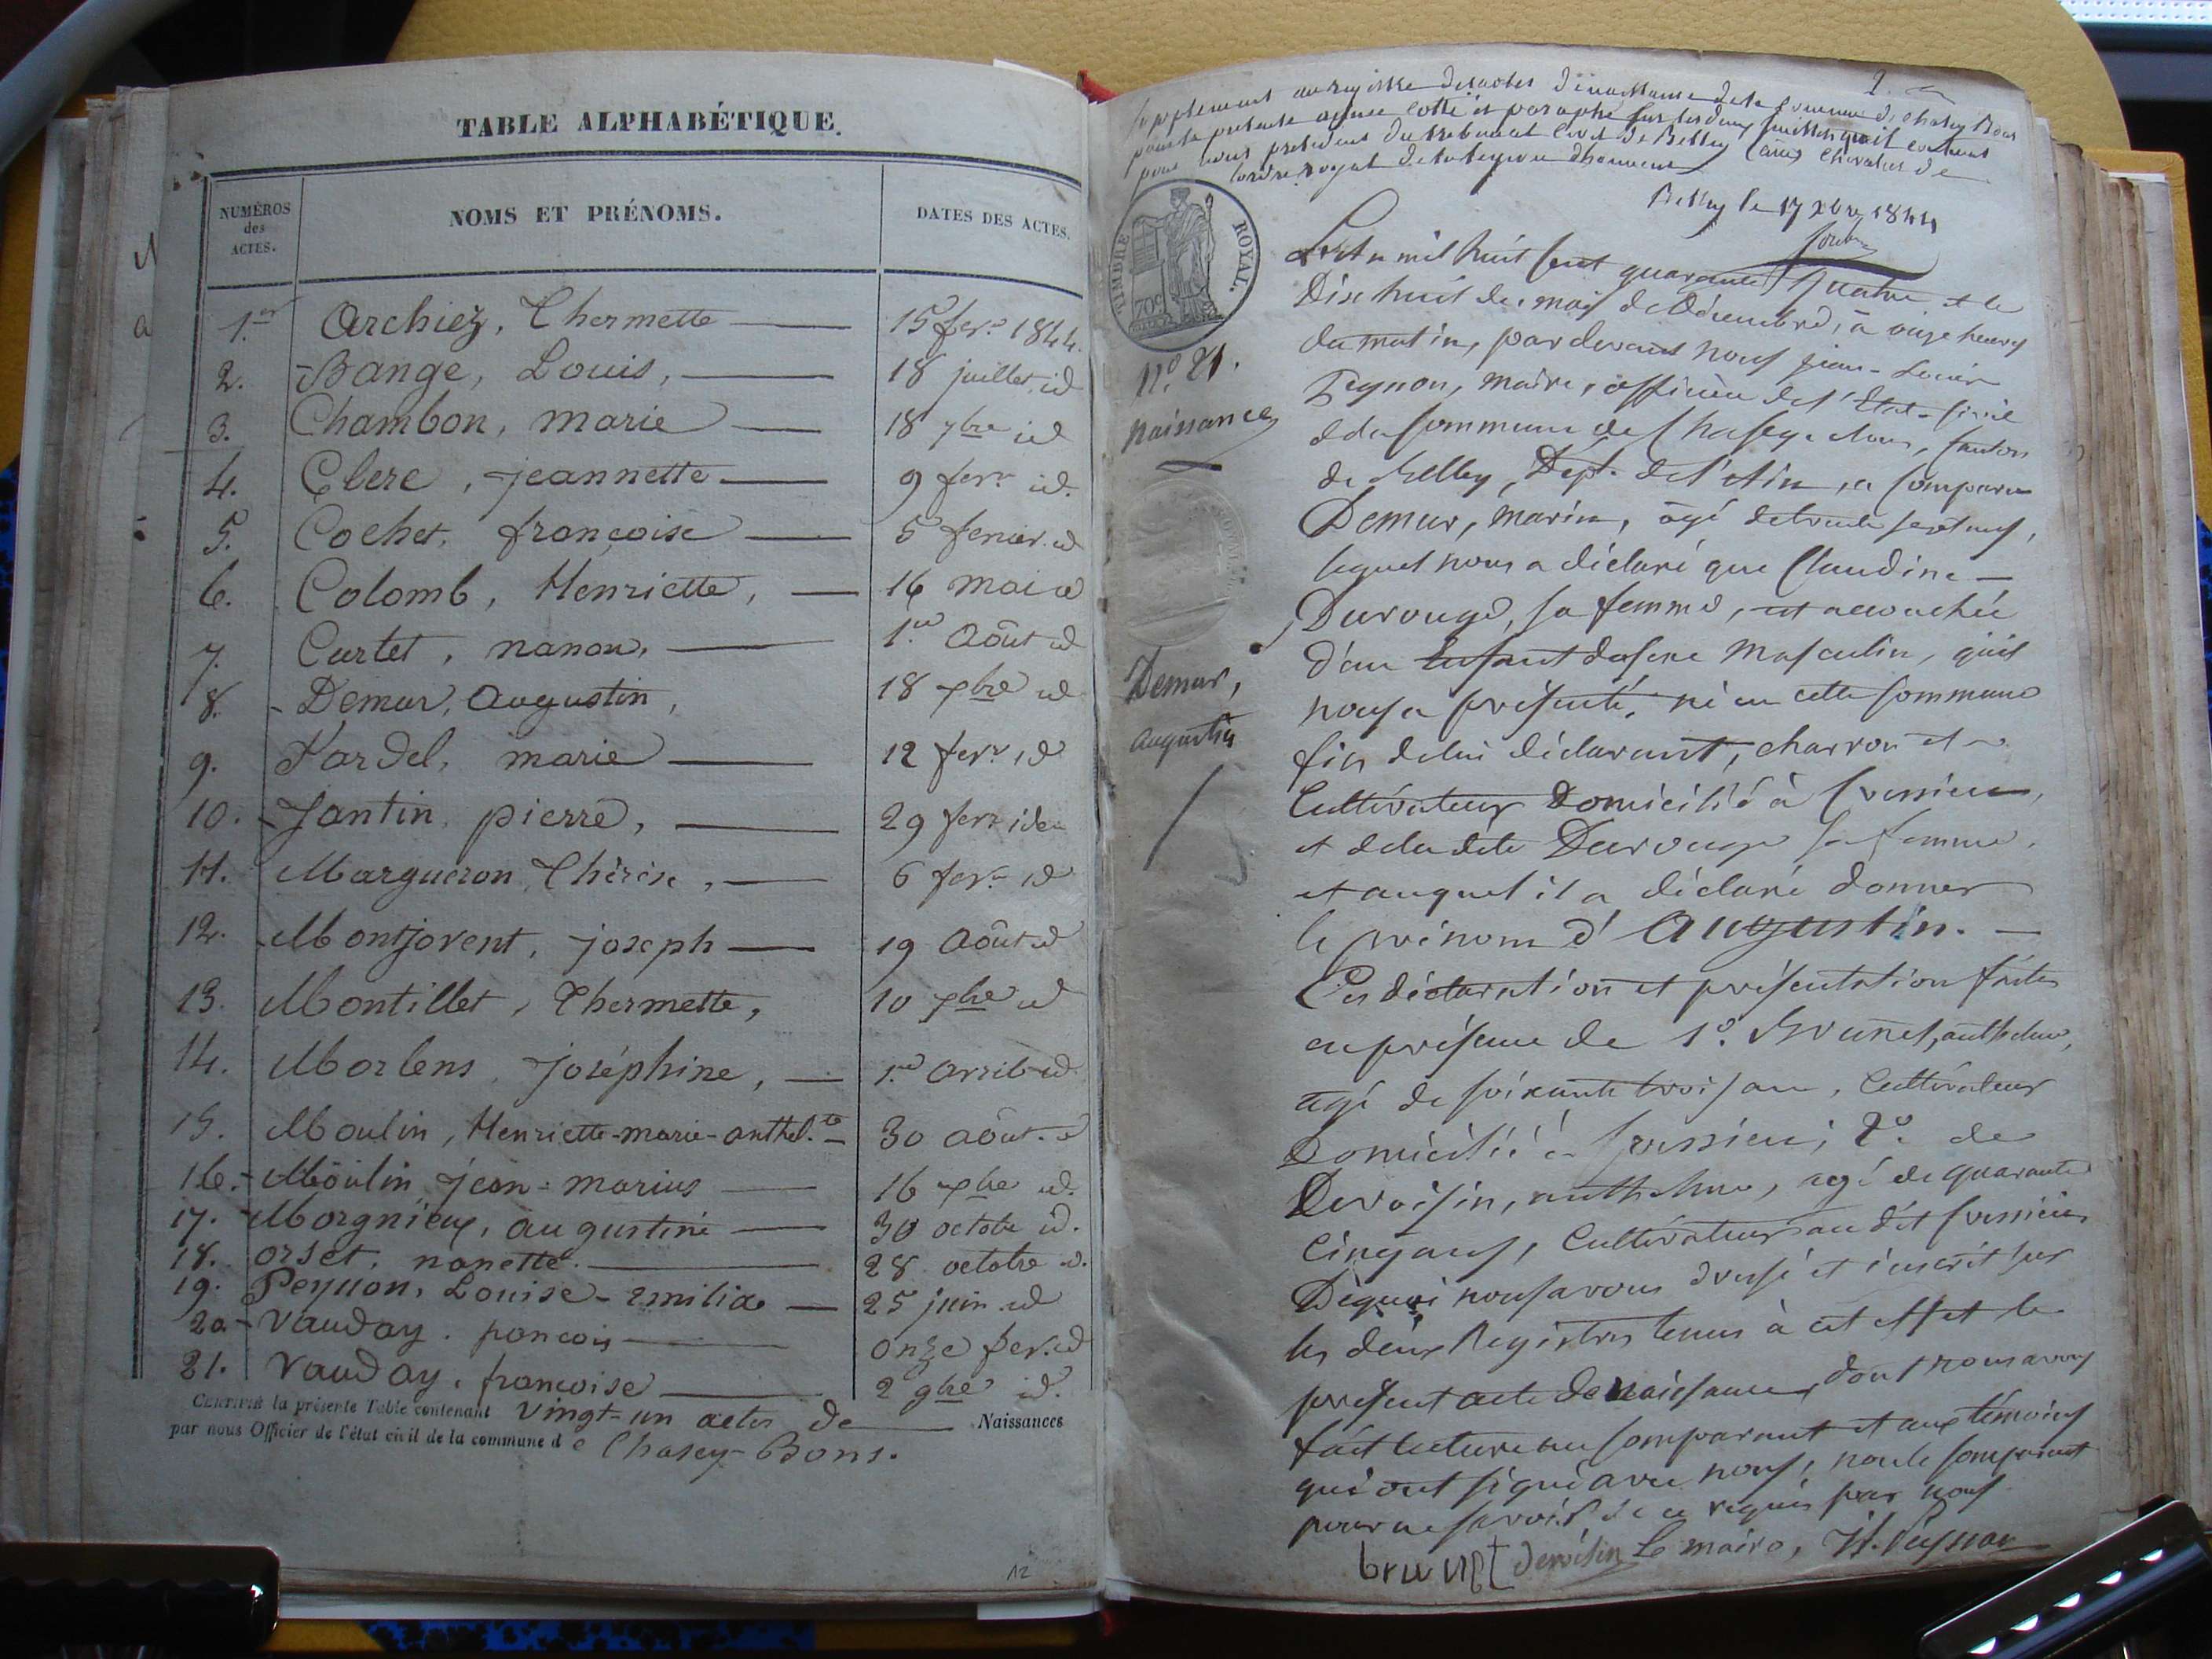 TABLE ALPHABÉTIQUE.
NUMÉROS des ACTES. NOMS ET PRÉNOMS. DATES DES ACTES.
1.er Archiez, Thermette 15 fer. 1844.
2. Bange, Louis, 18 juillet id
3. Chambon, marie 18 7bre id
4. Clere, jeannette 9 fer. id.
5. Cochet, françoise 5 ferier. id
6. Colomb, Henriette, 16 mai id
7. Curtet, nanon, 1.er Août id
8. Demur, Augustin, 18 xbre id
9. Fardel, marie 12 fer. id
10. Jantin pierre, 29 fer. idem
11. Margueron Thérèse, 6 fer. id
12. Montjovent, joseph 19 Août id
13. Montillet, Thermette, 10 xbre id
14. Morlens, Joséphine, 1.er avril id
15. Moulin, Henriette-marie-anthel.te 30 août. id
16. Moulin jean-marius 16 xbre id.
17. Morgnieux, augustine 30 octobre id.
18. orset, nanette. 28 octobre id.
19. Peynon, Louise-emilie 25 juin id
20. Vauday. françois onze fer. id
21. Vauday, francoise 2 9bre id.
CERTIFIÉ la présente Table contenant vingt-un actes de Naissances
par nous Officier de l'état civil de la commune de Chasey-Bons.
12
Supplement au registre des actes de naissance de la commune de Chasey Bons
pour la presente année cotté et paraphé sur les deux feuillets qu'il contient
par nous president du tribunal civil de Belley chevalier de
l'ordre royal de la légion d'honneur
Belley le 17 xbre 1844
TIMBRE ROYAL.
70c
N.o 21.
naissance
Demur,
augustin
L'An mil huit cent quarante quatre et le
Dix huit du mois de Décembre, à onze heures
du matin, par devant nous jean-Louis
Peynon, maire, officier de l'État-civil
de la commune de Chasey-Bons, canton
de Belley, Dépt. de l'Ain, a comparu
Demur, marin, âgé de trente sept ans,
lequel nous a déclaré que Claudine
Durouge, sa femme, est accouchée
d'un Enfant de sexe Masculin, qu'il
nous a présenté, né en cette commune
fils de lui déclarant, charron et
Cultivateur Domicilié à Cressieu,
et de la dite Durouge sa femme,
et auquel il a déclaré donner
le prénom d'Augustin.
Ces déclaration et présentation faites
en présence de 1.o Brunet, anthelme,
agé de soixante trois ans, Cultivateur
Domicilié à Cressieu; 2.o de
Devoisin, anthelme, agé de quarante
Cinq ans, Cultivateur au dit Cressieu
De quoi nous avons dressé et inscrit sur
les deux Registres tenus à cet effet le
présent acte de naissance, dont nous avons
fait lecture au comparant et aux témoins
qui ont signé avec nous, non le comparant
pour ne savoir de ce requis par nous
brunet devoisin Le maire, J.L. Peynon